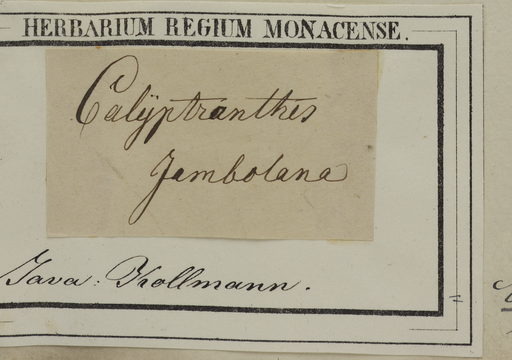 HERBARIUM REGIUM MONACENSE.
Calÿptranthes
Jambolana
Java: Kollmann.